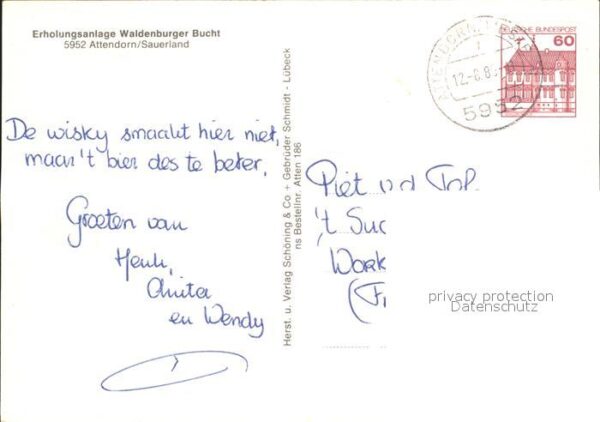 Erholungsanlage Waldenburger Bucht
5952 Attendorn/Sauerland
De wisky smaakt hier niet,
maar 't bier des te beter.
Groeten van
Henk,
Anita
en Wendy
Herst. u. Verlag Schöning & Co + Gebrüder Schmidt - Lübeck
ns Bestellnr. Atten 186
DEUTSCHE BUNDESPOST
60
12.-8.8
5952
Piet
't
Work
privacy protection
Datenschutz